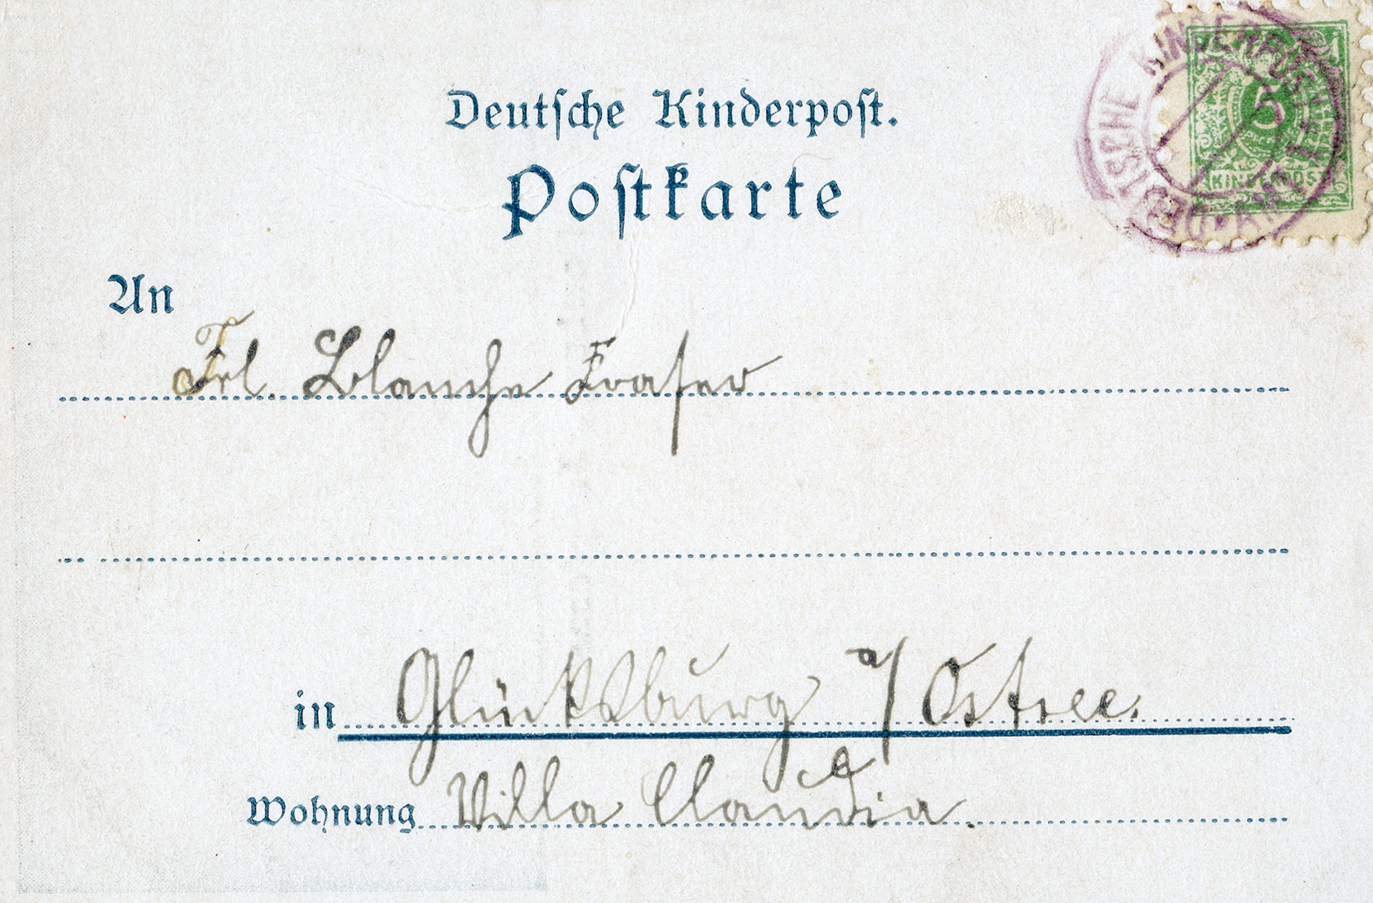 Deutsche Kinderpost.
Postkarte
DEUTSCHE KINDERPOST
5
KINDERPOST
An
Frl. Blanche Fraser
in Glücksburg a/Ostsee.
Wohnung Villa Claudia.